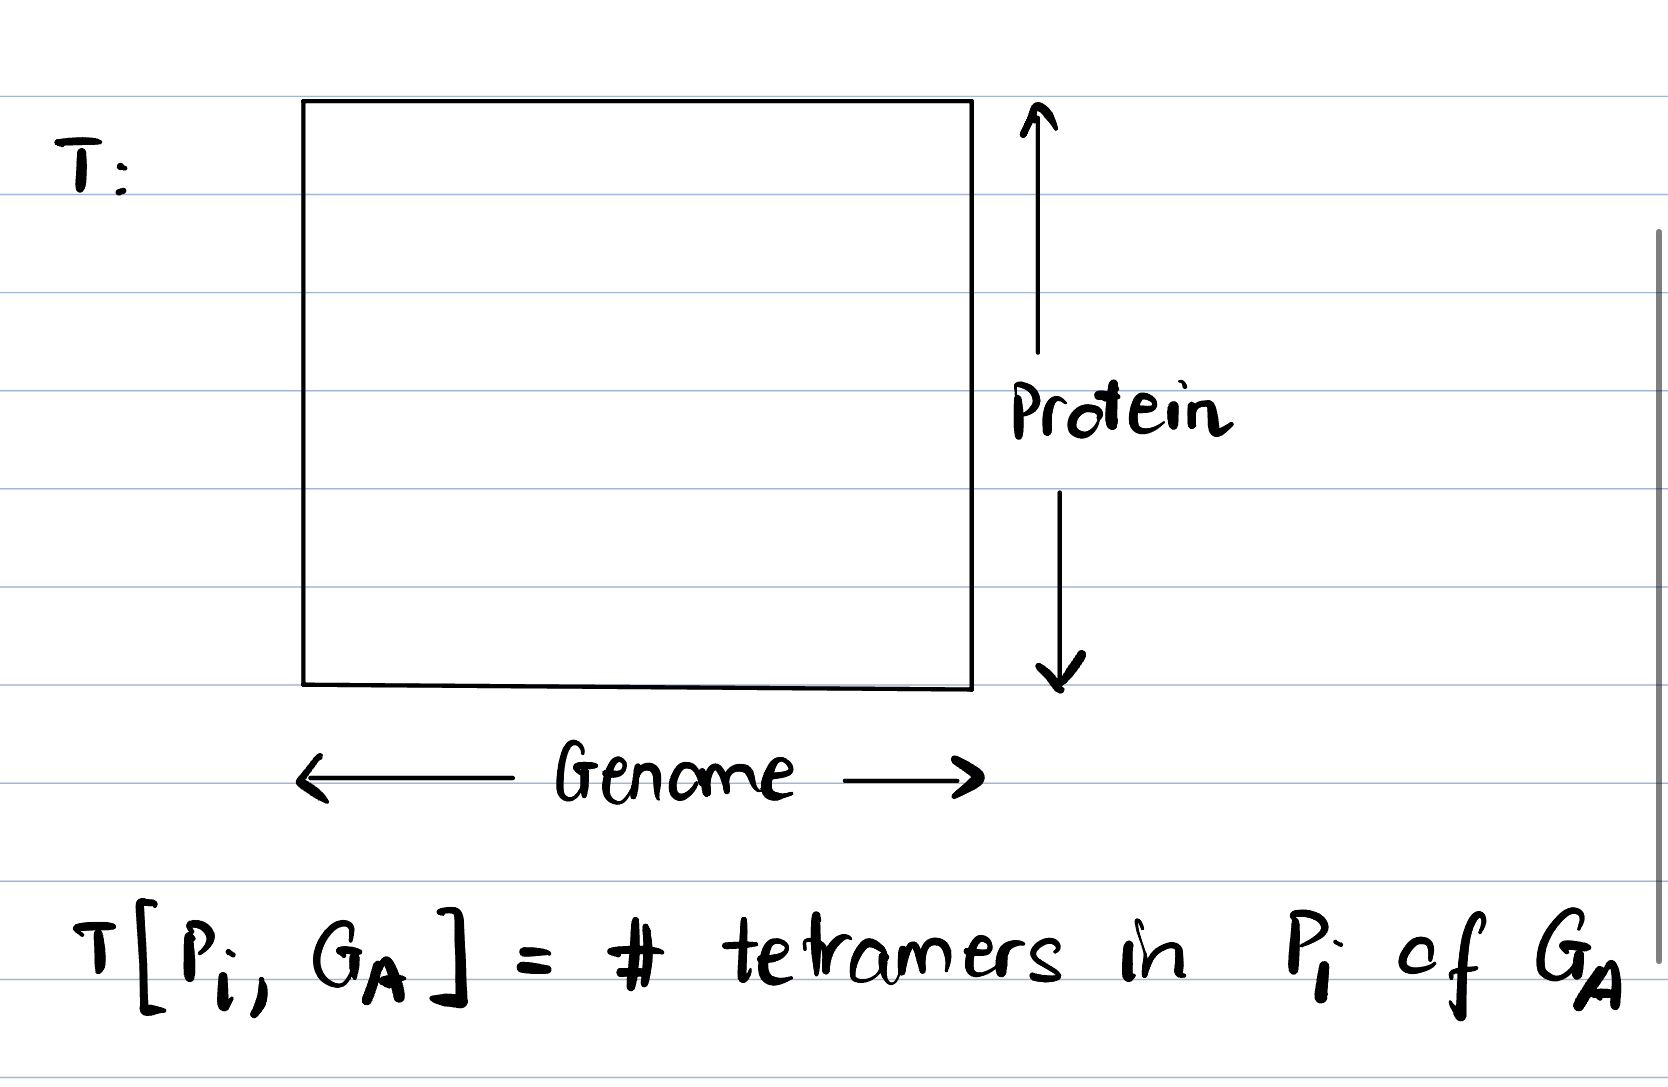 T:
Protein
Genome
T[Pi, GA] = # tetramers in Pi of GA